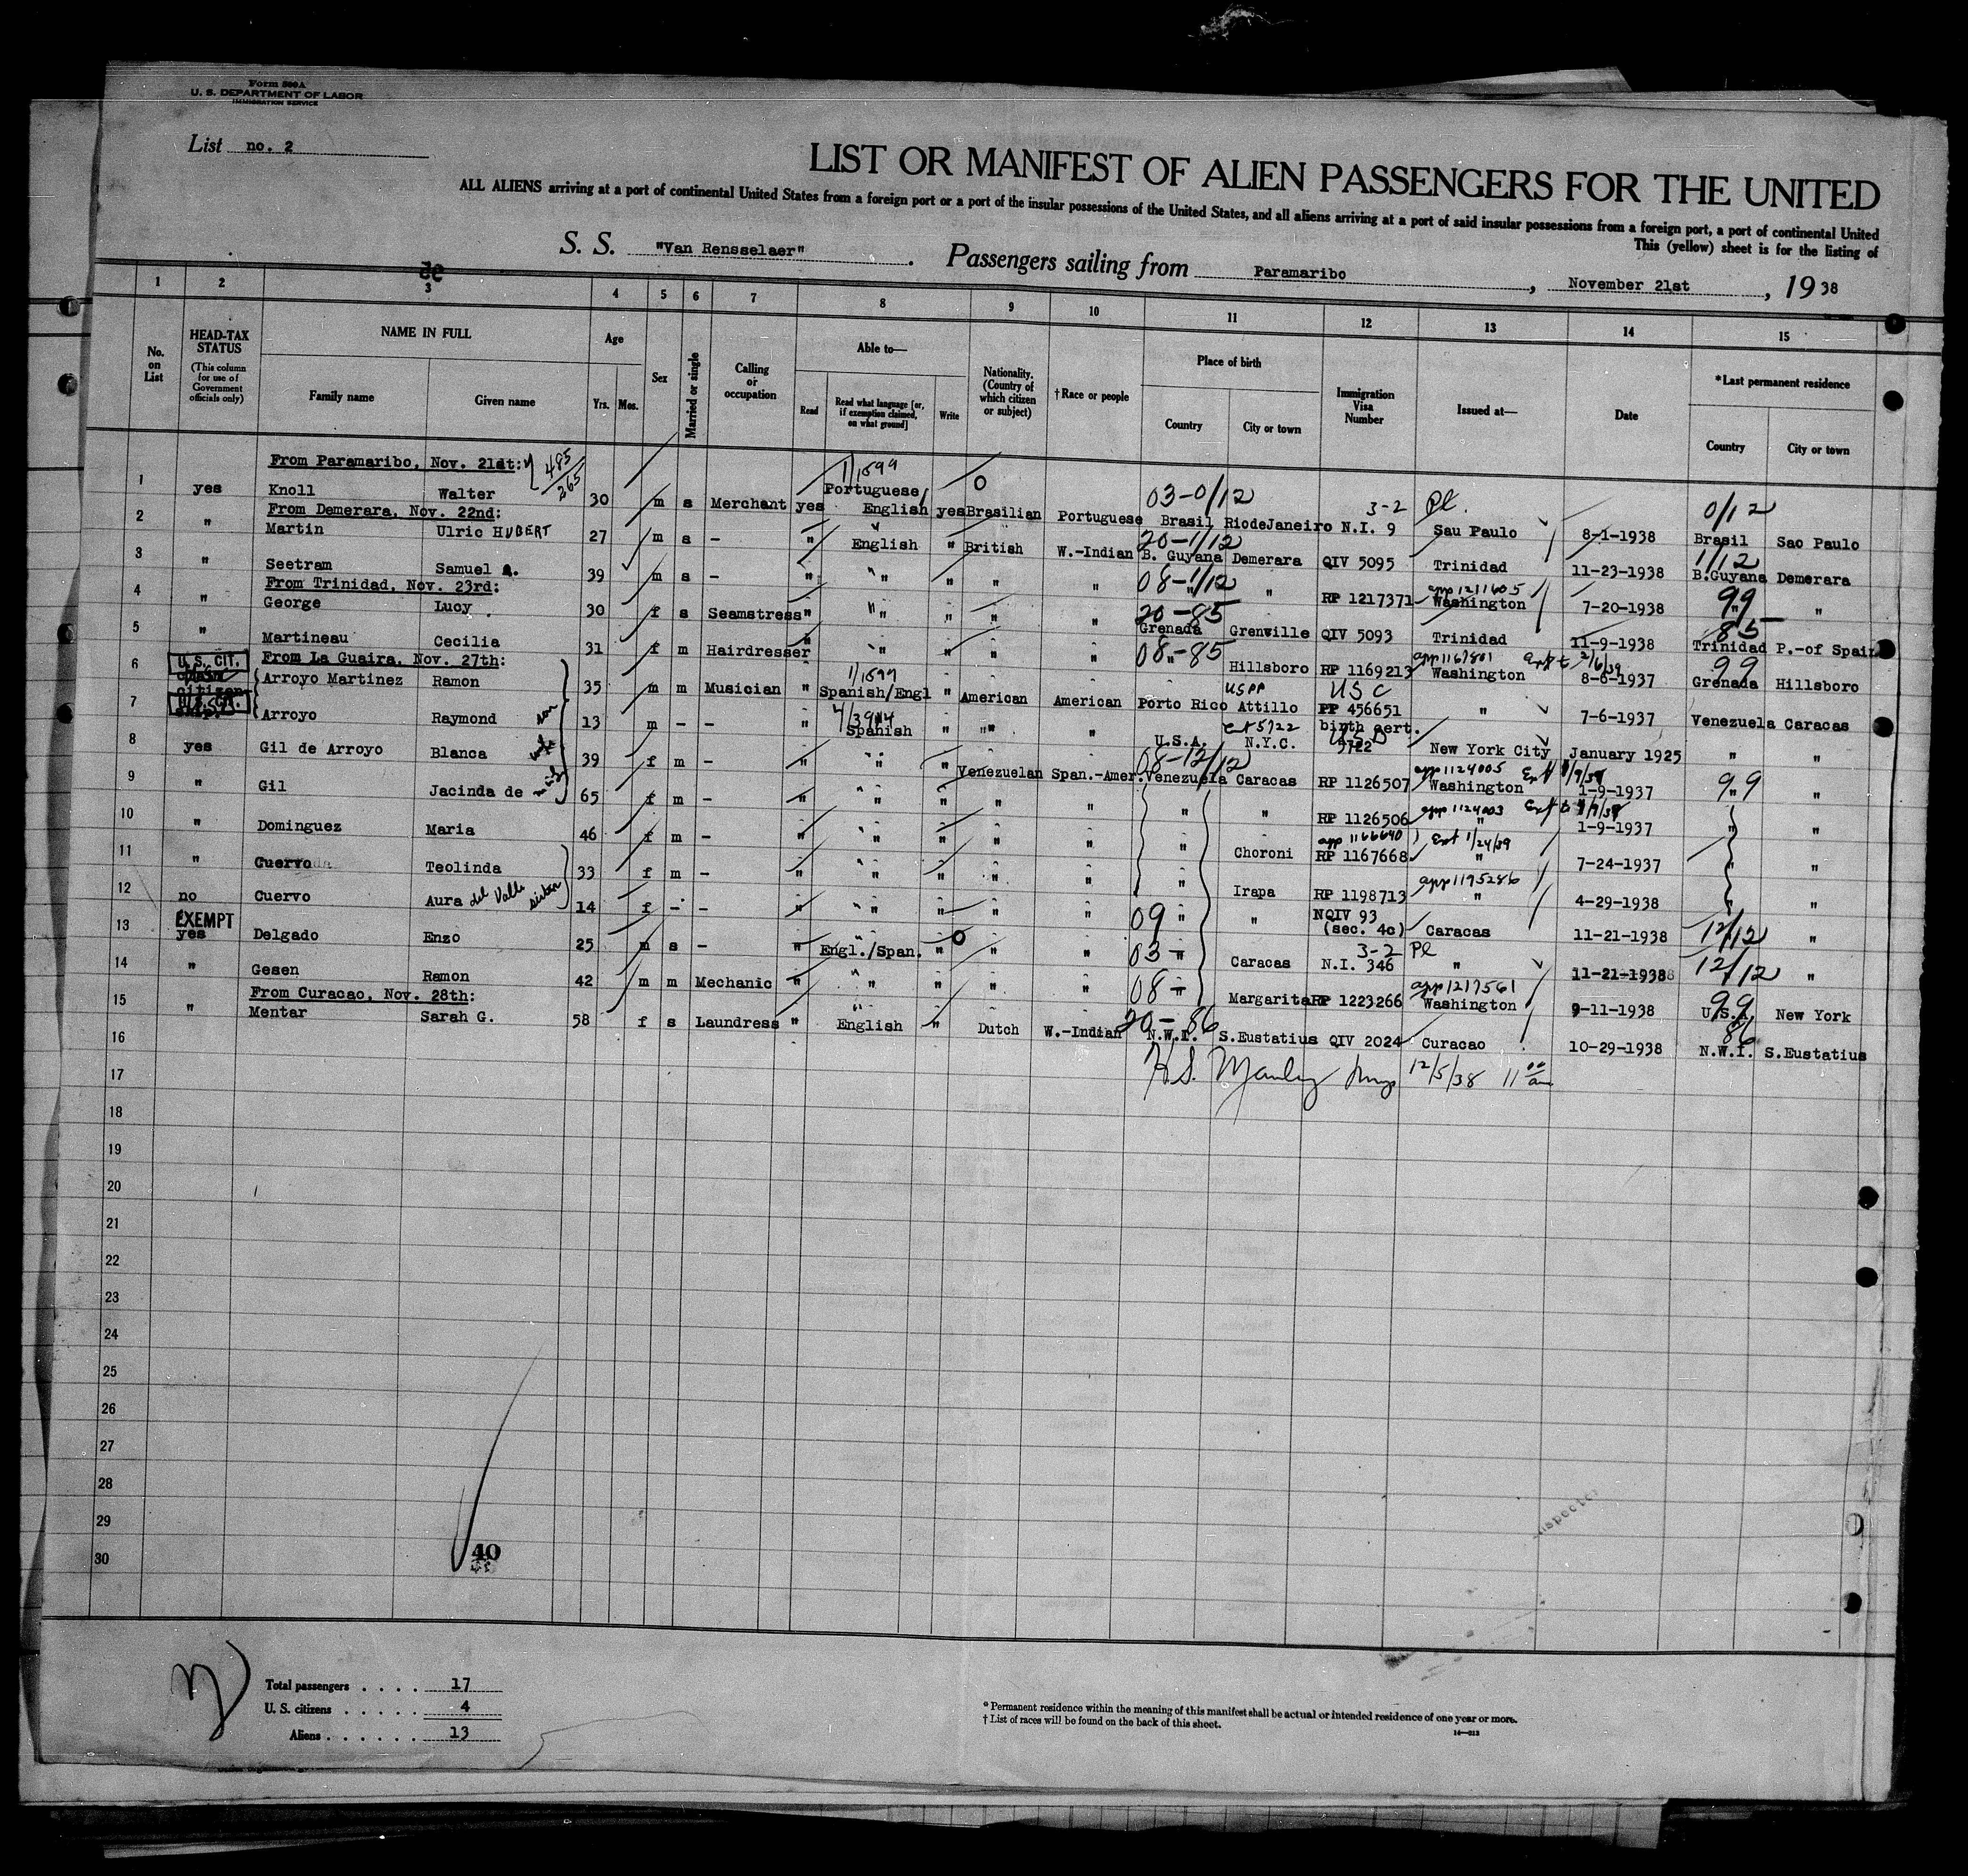 Form 500A
U. S. DEPARTMENT OF LABOR
IMMIGRATION SERVICE
List no. 2
LIST OR MANIFEST OF ALIEN PASSENGERS FOR THE UNITED
ALL ALIENS arriving at a port of continental United States from a foreign port or a port of the insular possessions of the United States, and all aliens arriving at a port of said insular possessions from a foreign port, a port of continental United
This (yellow) sheet is for the listing of
S. S. "Van Rensselaer". Passengers sailing from Paramaribo, November 21st, 1938
de
1 2 3 4 5 6 7 8 9 10 11 12 13 14 15
No. on List
HEAD-TAX STATUS (This column for use of Government officials only)
NAME IN FULL
Family name Given name
Age Yrs. Mos.
Sex
Married or single
Calling or occupation
Able to—
Read Read what language [or, if exemption claimed, on what ground] Write
Nationality. (Country of which citizen or subject)
† Race or people
Place of birth
Country City or town
Immigration Visa Number
Issued at—
Date
*Last permanent residence
Country City or town
From Paramaribo, Nov. 21st: 485/265
1 yes Knoll Walter 30 m s Merchant yes Portuguese/English yes Brasilian Portuguese Brasil RiodeJaneiro N.I. 9 Sau Paulo 8-1-1938 Brasil Sao Paulo
03-0/12 3-2 Pl. 0/12
From Demerara, Nov. 22nd:
2 " Martin Ulric HUBERT 27 m s - " English " British W.-Indian B. Guyana Demerara QIV 5095 Trinidad 11-23-1938 B.Guyana Demerara
20-1/12 1/12
3 " Seetram Samuel 39 m s - " " " " " " " RP 1217371 Washington 7-20-1938 " "
08-1/12 app 1211605 99
From Trinidad, Nov. 23rd:
4 " George Lucy 30 f s Seamstress " " " " " Grenada Grenville QIV 5093 Trinidad 11-9-1938 Trinidad P.-of Spain
20-85 85
5 " Martineau Cecilia 31 f m Hairdresser " " " " " " Hillsboro RP 1169213 Washington 8-6-1937 Grenada Hillsboro
08-85 app 1167801 Ext 2/6/39 99
From La Guaira, Nov. 27th:
6 U.S. CIT. citizen Arroyo Martinez Ramon 35 m m Musician " Spanish/Engl " American American Porto Rico Attillo PP 456651 " 7-6-1937 Venezuela Caracas
USPP USC
7 U.S. CIT. Arroyo Raymond son 13 m - - " Spanish " " " U.S.A. N.Y.C. birth cert. 5722 New York City January 1925 " "
8 yes Gil de Arroyo Blanca wife 39 f m - " " " Venezuelan Span.-Amer. Venezuela Caracas RP 1126507 Washington 1-9-1937 " "
08-12/12 app 1124005 99
9 " Gil Jacinda de 65 f m - " " " " " " " RP 1126506 " 1-9-1937 " "
app 1124003
10 " Dominguez Maria 46 f m - " " " " " " Choroni RP 1167668 " 7-24-1937 " "
app 1166640 Ext 1/24/39
11 " Cuervo Teolinda 33 f m - " " " " " " Irapa RP 1198713 " 4-29-1938 " "
app 1195286
12 no Cuervo Aura del Valle sister 14 f - - " " " " " " " NQIV 93 (sec. 4c) Caracas 11-21-1938 "
09 12/12
EXEMPT
13 yes Delgado Enzo 25 m s - " Engl./Span. " " " " Caracas N.I. 346 " 11-21-1938 "
03 3-2 Pl 12/12
14 " Gesen Ramon 42 m m Mechanic " " " " " " Margarita RP 1223266 Washington 9-11-1938 U.S.A. New York
08 app 1217561 99
From Curacao, Nov. 28th:
15 " Mentar Sarah G. 58 f s Laundress " English " Dutch W.-Indian N.W.I. S.Eustatius QIV 2024 Curacao 10-29-1938 N.W.I. S.Eustatius
20-86 86
16
12/5/38 11 00 am
17
18
19
20
21
22
23
24
25
26
27
28
29
30
40
Total passengers . . . . 17
U. S. citizens . . . . . 4
Aliens . . . . . . 13
* Permanent residence within the meaning of this manifest shall be actual or intended residence of one year or more.
† List of races will be found on the back of this sheet.